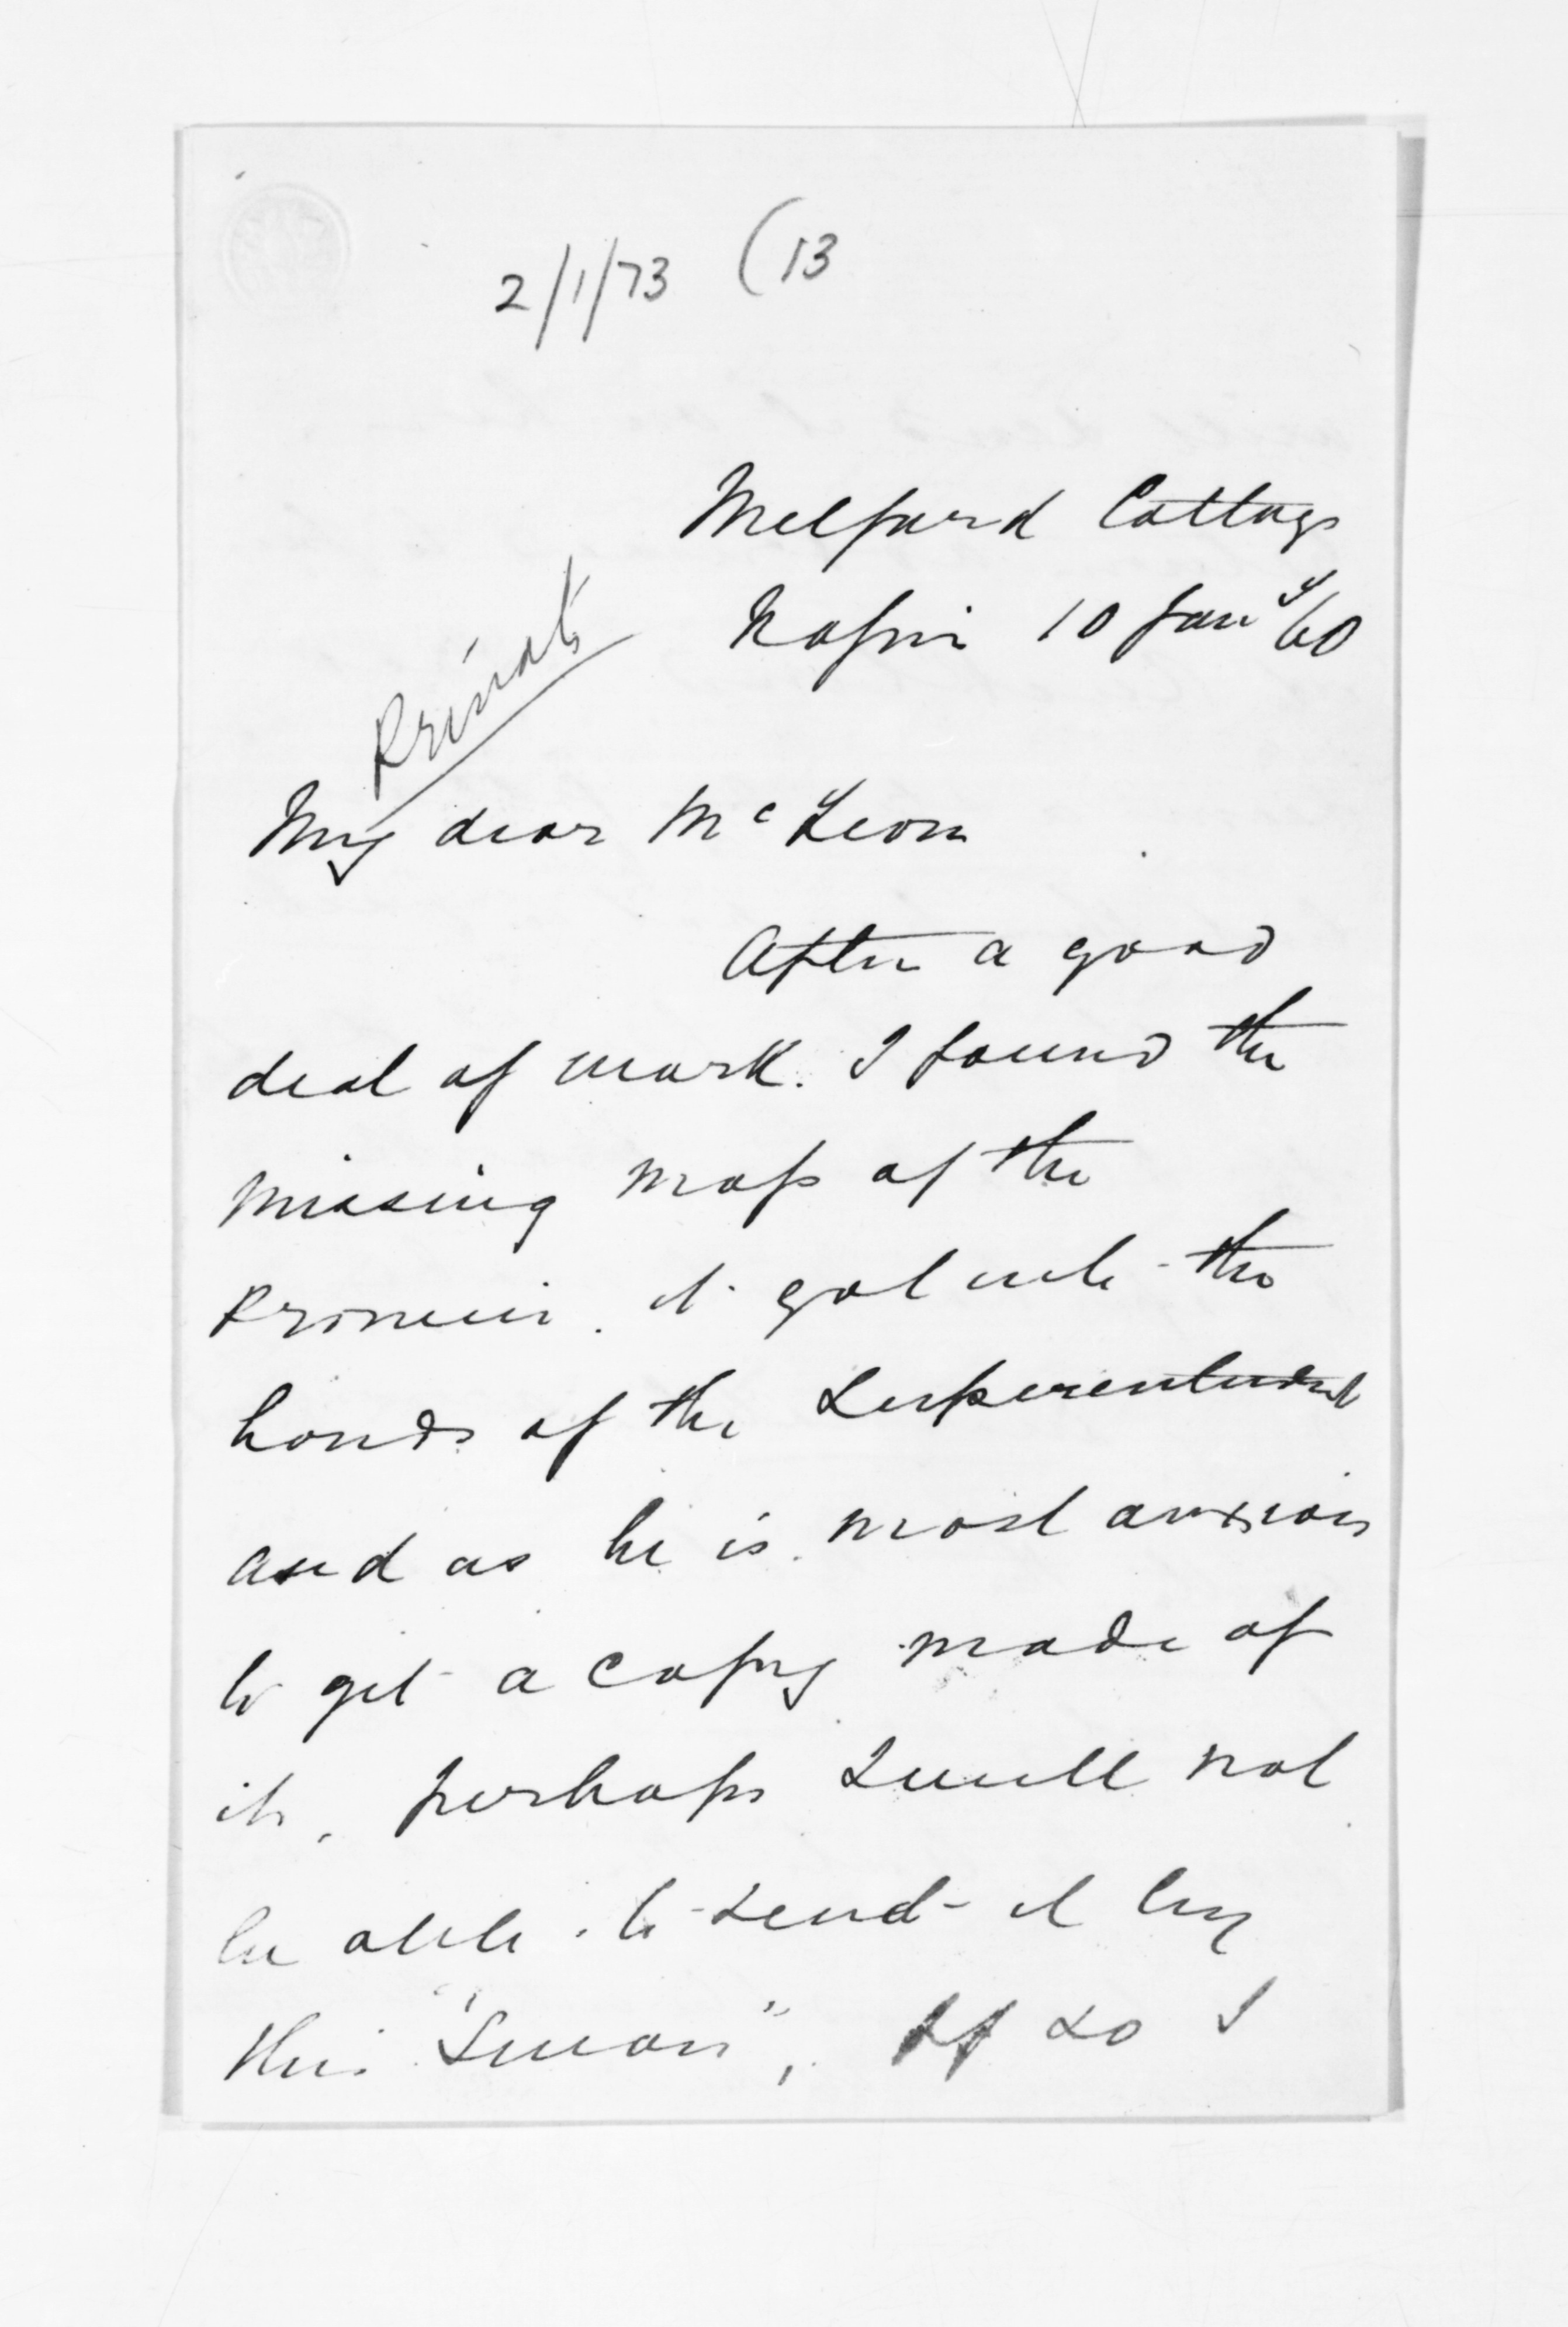 2/1/73 (13
Melford Cottage
Napier 10 Jany /60
Private
My dear McLean
After a good
deal of work. I found the
missing map of the
Province. It got into the
hands of the Superintendent
and as he is most anxious
to get a copy made of
it, perhaps I will not
be able to send it by
this "Swan", If so I